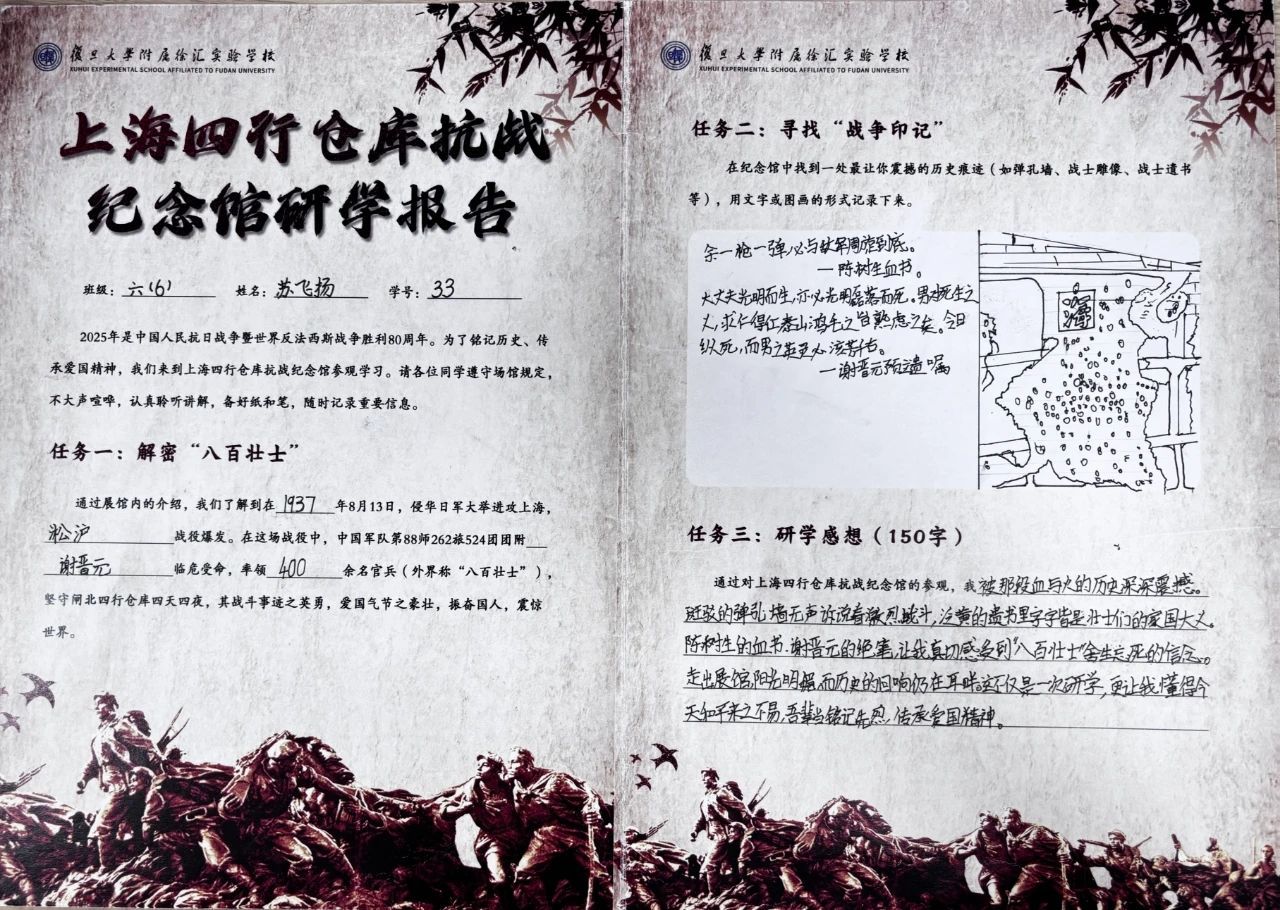 復旦大學附属徐汇实验学校
XUHUI EXPERIMENTAL SCHOOL AFFILIATED TO FUDAN UNIVERSITY
上海四行仓库抗战
纪念馆研学报告
班级：六(6) 姓名：苏飞扬 学号：33
2025年是中国人民抗日战争暨世界反法西斯战争胜利80周年。为了铭记历史、传
承爱国精神，我们来到上海四行仓库抗战纪念馆参观学习。请各位同学遵守场馆规定，
不大声喧哗，认真聆听讲解，备好纸和笔，随时记录重要信息。
任务一：解密“八百壮士”
通过展馆内的介绍，我们了解到在 1937 年8月13日，侵华日军大举进攻上海，
淞沪 战役爆发。在这场战役中，中国军队第88师262旅524团团附
谢晋元 临危受命，率领 400 余名官兵（外界称“八百壮士”），
坚守闸北四行仓库四天四夜，其战斗事迹之英勇，爱国气节之豪壮，振奋国人，震惊
世界。
復旦大學附属徐汇实验学校
XUHUI EXPERIMENTAL SCHOOL AFFILIATED TO FUDAN UNIVERSITY
任务二：寻找“战争印记”
在纪念馆中找到一处最让你震撼的历史痕迹（如弹孔墙、战士雕像、战士遗书
等），用文字或图画的形式记录下来。
余一枪一弹必与敌军周旋到底。
—陈树生血书。
大丈夫光明而生，亦必光明磊落而死。男对死生之
义，求仁得仁泰山鸿毛之旨熟虑之矣。今日
纵死，而男之英灵必流芳传。
—谢晋元预立遗嘱
任务三：研学感想（150字）
通过对上海四行仓库抗战纪念馆的参观，我被那段血与火的历史深深震撼。
斑驳的弹孔墙无声诉说着激烈战斗，泛黄的遗书里字字皆是壮士们的家国大义。
陈树生的血书、谢晋元的绝笔，让我真切感受到“八百壮士”舍生忘死的信念。
走出展馆，阳光明媚，而历史的回响仍在耳畔。这不仅是一次研学，更让我懂得今
天和平来之不易，吾辈当铭记先烈，传承爱国精神。